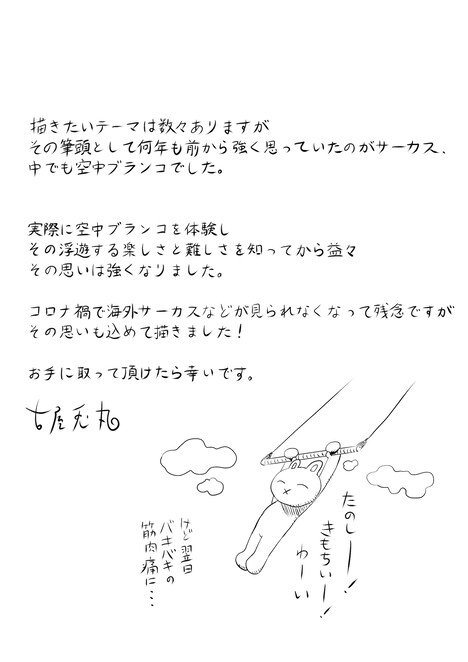 描きたいテーマは数々ありますが
その筆頭として何年も前から強く思っていたのがサーカス、
中でも空中ブランコでした。
実際に空中ブランコを体験し
その浮遊する楽しさと難しさを知ってから益々
その思いは強くなりました。
コロナ禍で海外サーカスなどが見られなくなって残念ですが
その思いも込めて描きました！
お手に取って頂けたら幸いです。
古屋兎丸
たのしー！
きもちいー！
わーい
けど翌日
バキバキの
筋肉痛に・・・